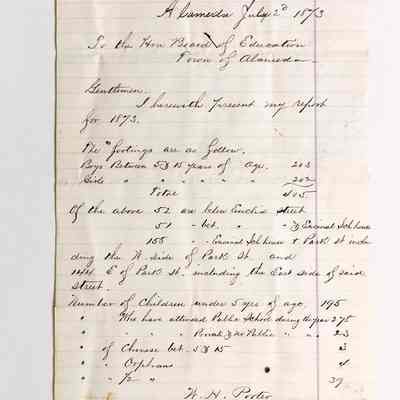 Alameda July 2d 1873
To the Hon Board of Education
Town of Alameda
Gentlemen
I herewith present my report
for 1873.
The "footings are as follow.
Boys Between 5 & 15 years of age. 203
Girls " " " " " " 202
Total 405
Of the above 52 are below Euclid Street
51 " bet. " " & Encinal Sch house
155 " " Encinal Sch house & Park St inclu
ding the W. side of Park St. and
144 E of Park St. including the East side of said
Street.
Number of Children under 5 yrs of age, 195
" Who have attended Public School during the year 275
" " " Private & No Public " " " 23
" of Chinese bet. 5 & 15 3
" " Orphans 4
" " 1/2 " 39
W. H. Porter